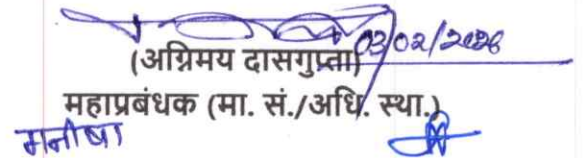 03/02/2026
(अग्निमय दासगुप्ता)
महाप्रबंधक (मा. सं./अधि. स्था.)
मनीषा